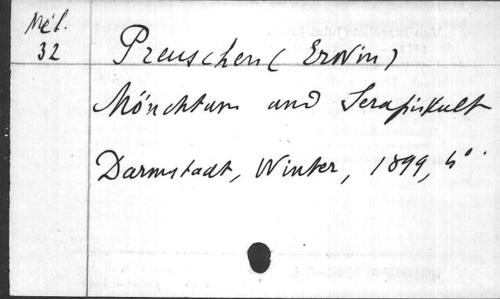 Mél.
32
Preuschen (Erwin)
Mönchtum und Serapiskult
Darmstadt, Winter, 1899, 4°.